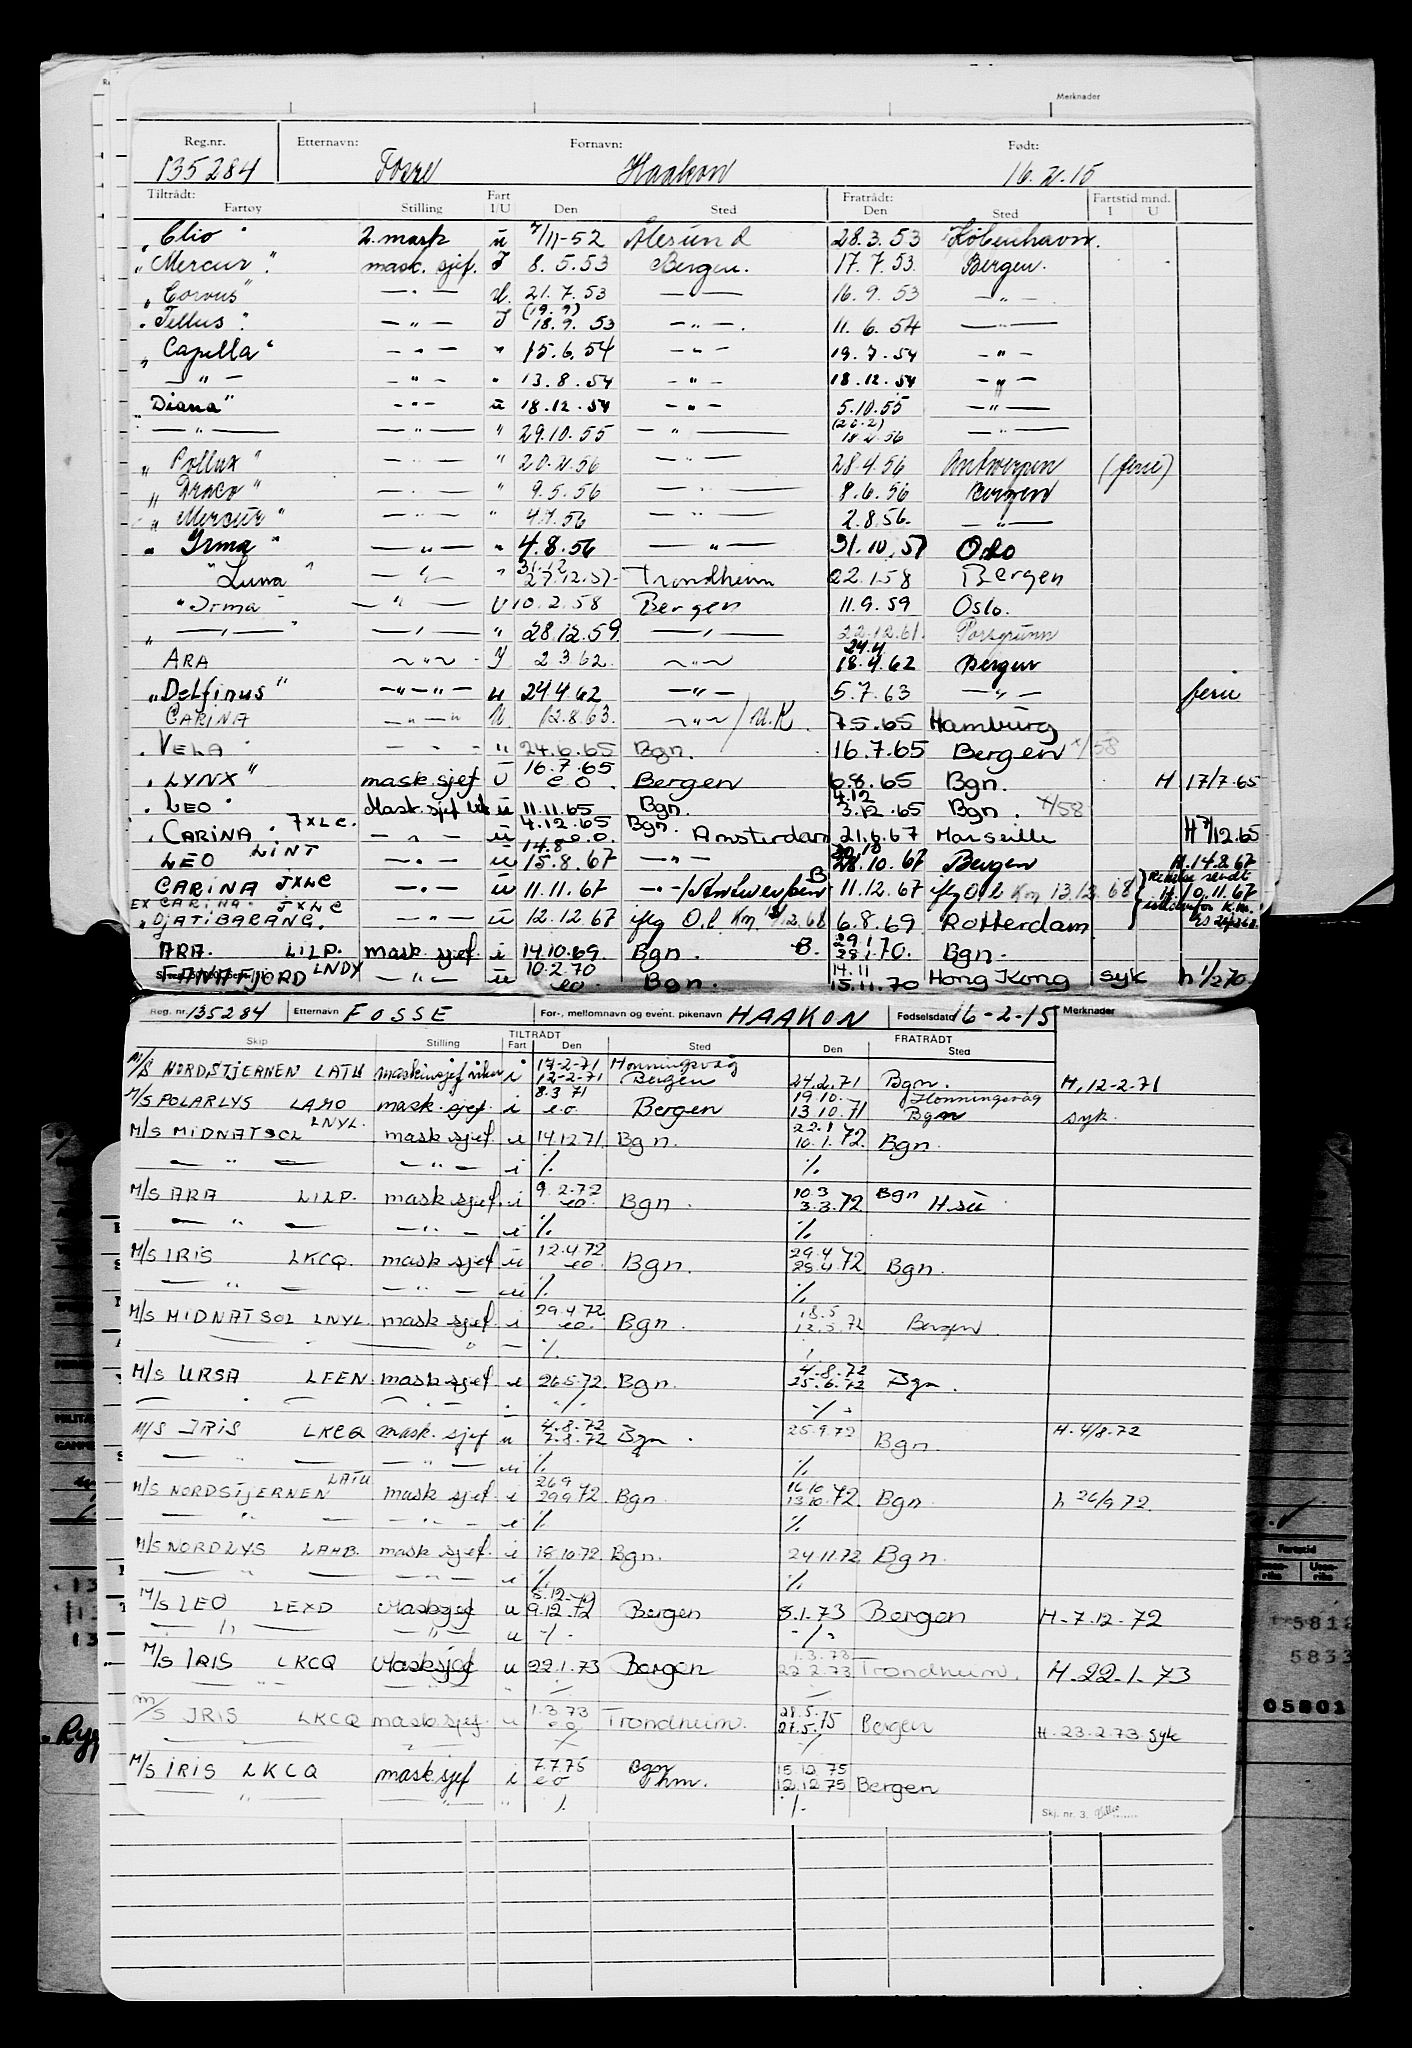 Merknader
Reg.nr. Etternavn: Fornavn: Født:
135284 Fosse Haakon 16.2.15
Tiltrådt: Fart Fratrådt: Fartstid mnd.
Fartøy Stilling I/U Den Sted Den Sted I U
"Clio" 2. mask u 7/11-52 Ålesund 28.3.53 København.
"Mercur". mask. sjef. I 8.5.53 Bergen. 17.7.53 Bergen.
"Corvus" — " — U. 21.7.53 — " — 16.9.53 — " —
(19.9)
"Tellus". — " — I 18.9.53 — " — 11.6.54 — " —
"Capella" — " — " 15.6.54 — " — 19.7.54 — " —
— " — — " — " 13.8.54 — " — 18.12.54 — " —
"Diana" — " — u 18.12.54 — " — 5.10.55 — " —
(20.2)
— " — — " — " 29.10.55 — " — 18.2.56 — " —
"Pollux" — " — " 20.2.56 — " — 28.4.56 Antwerpen (ferie)
"Draco" — " — " 9.5.56 — " — 8.6.56 Bergen
"Mercur" — " — " 4.7.56 — " — 2.8.56. — " —
"Irma" — " — " 4.8.56 — " — 31.10.57 Oslo
31.12
"Luna" — " — " 27.12.57 Trondheim 22.1.58 Bergen
"Irma" — " — U 10.2.58 Bergen 11.9.59 Oslo.
" — " — " — " — " 28.12.59 — " — 22.12.61. Porsgrunn
24.4
ARA — " — I 2.3.62 — " — 18.4.62 Bergen
"Delfinus" — " — " — u 24.4.62 — " — 5.7.63 — " — ferie
CARINA — " — " U 12.8.63. — " — / U.K. 7.5.65 Hamburg
"VELA" — " — " 24.6.65 Bgn. 16.7.65 Bergen x/58
16.7.65
"LYNX" mask.sjef u eo. Bergen 6.8.65 Bgn. H 17/7.65
4.12
"LEO" Mask.sjef u 11.11.65 Bgn. 3.12.65 Bgn. x/58
4.12.65
"CARINA" JXLC. — " — u e.o. Bgn. Amsterdam 21.6.67 Marseille H 7/12.65
14.8 30.10
LEO LINT — " — u 15.8.67 — " — 28.10.67 Bergen H.14.8.67
CARINA JXLC — " — u 11.11.67 — " — / Antwerpen B 11.12.67 iflg O.l Km 13.12.68 H.10.11.67
EX CARINA. JXLC
"DJATIBARANG. — " — u 12.12.67 iflg O.l. Km 13/12.68 6.8.69 Rotterdam
29.1
ARA. LILP. mask.sjef i 14.10.69 Bgn. B. 28.1.70. Bgn.
10.2.70 14.11
FANAFJORD LNDY — " — u eo Bgn. 15.11.70 Hong Kong syk h 1/2 70.
Reg. nr. 135284 Etternavn FOSSE For-, mellomnavn og event. pikenavn HAAKON Fødselsdato 16-2-15 Merknader
TILTRÅDT FRATRÅDT
Skip Stilling Fart Den Sted Den Sted
17-2-71 Honningsvåg
M/S NORDSTJERNEN LATU maskinsjef i 12-2-71 Bergen 24.2.71 Bgn. H, 12-2-71
8.3.71 19.10. Honningsvåg
M/S POLARLYS LAHO mask. sjef. i eo Bergen 13.10.71 Bgn syk.
22.1
M/S MIDNATSOL LNYL. mask sjef i 14.12.71 Bgn. 10.1.72. Bgn.
— " — — " — i %. %.
9.2.72 10.3 Bgn
M/S ARA LILP. mask sjef. i eo. Bgn. 3.3.72 H.sü
— " — — " — i %. %.
12.4.72 29.4
M/S IRIS LKCQ. mask sjef u eo. Bgn. 28.4.72 Bgn.
— " — — " — u %. %.
29.4.72 18.5
M/S MIDNATSOL LNYL. mask sjef. i eo. Bgn. 12.5.72 Bergen
— " — %.
4.8.72
M/S URSA LFEN. mask sjef. i 26.5.72. Bgn. 25.6.72 Bgn.
— " — — " — %. %.
4.8.72
M/S IRIS LKCQ mask. sjef u 7.8.72 Bgn. 25.9.72 Bgn. H. 4/8-72
— " — — " — u %. %.
26.9 16.10
M/S NORDSTJERNEN LATU mask sjef. i 29.9.72 Bgn. 13.10.72. Bgn. h 26/9 72
— " — — " — i %. %.
M/S NORDLYS LAHB. mask sjef. i 18.10.72 Bgn. 24.11.72 Bgn.
— " — — " — i %. %.
8.12.72
M/S LEO LEXD Masksjef u 9.12.72 Bergen 8.1.73 Bergen H-7-12-72
— " — — " — u %. %.
1.3.73
M/S IRIS LKCQ Masksjef u 22.1.73 Bergen 22.2.73 Trondheim. H-22-1-73
%. %.
1.3.73 28.5.
M/S IRIS LKCQ mask. sjef u eo Trondheim. 27.5.75 Bergen H-23-2-73 syk
— " — %. %.
7.7.75 Bgn 15.12.75
M/S IRIS LKCQ mask sjef i eo Thm. 12.12.75 Bergen
— " — — " — " %. %.
Skj. nr. 3.
Fartstid
5812
5833
05801